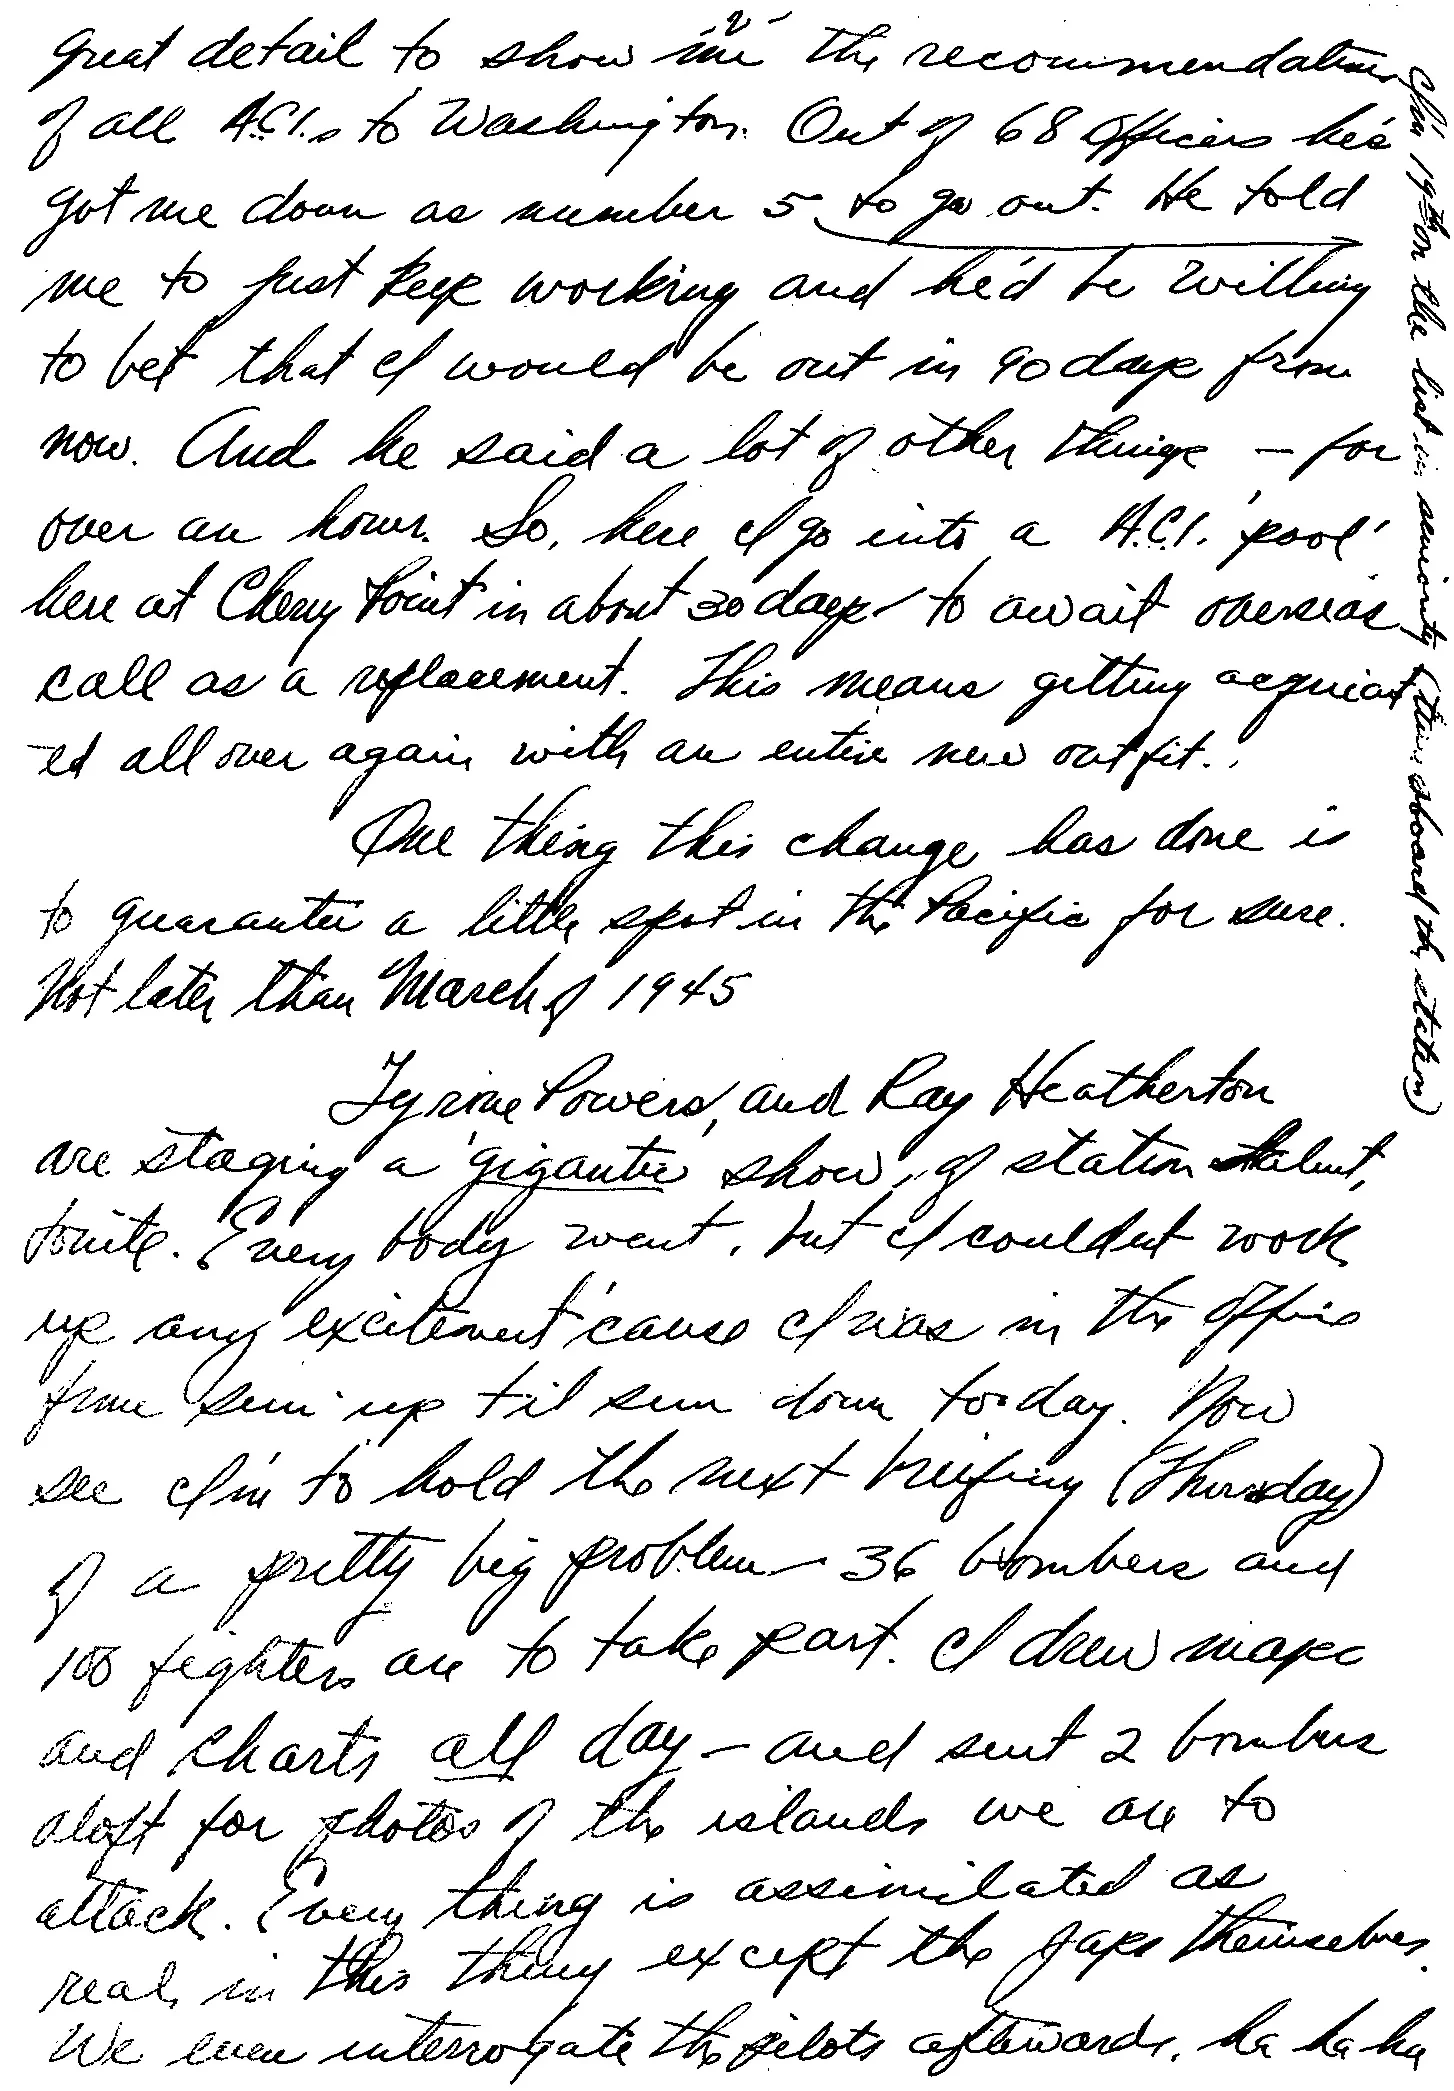 -2-
great detail to show me the recommendations
of all A.C.I.s to Washington. Out of 68 officers he's
got me down as number 5 to go out. He told
me to just keep working and he'd be willing
to bet that I would be out in 90 days from
now. And he said a lot of other things – for
over an hour. So, here I go into a A.C.I. 'pool'
here at Cherry Point in about 30 days – to await overseas
call as a replacement. This means getting acquiant
-ed all over again with an entire new outfit.
One thing this change has done is
to guarantee a little spot in the Pacific for sure.
Not later than March of 1945
Tyrone Powers, and Ray Heatherton
are staging a 'gigantic' show, of station talent,
tonite. Every body went, but I couldnt work
up any excitement 'cause I was in the office
from sun up til sun down to-day. Now
see I'm to hold the next briefing (Thursday)
of a pretty big problem – 36 bombers and
100 fighters are to take part. I drew maps
and charts all day – and sent 2 bombers
aloft for photos of the islands we are to
attack. Every thing is assimilated as
real in this thing except the Japs themselves.
We even interrogate the pilots afterwards. ha ha ha
(I'm 19th on the list in seniority (time aboard the station)